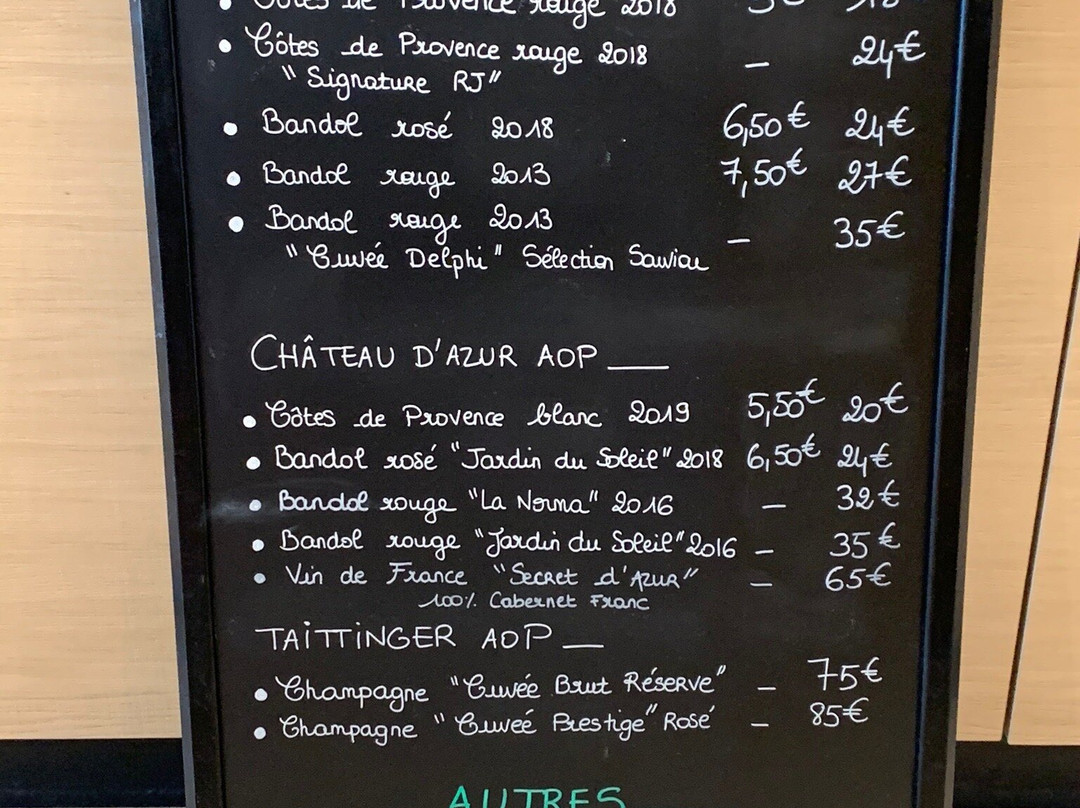 Côtes de Provence rouge 2018
• Côtes de Provence rouge 2018 – 24€
" Signature RJ"
• Bandol rosé 2018 6,50€ 24€
• Bandol rouge 2013 7,50€ 27€
• Bandol rouge 2013 – 35€
"Cuvée Delphi" Sélection
CHÂTEAU D'AZUR AOP __
• Côtes de Provence blanc 2019 5,50€ 20€
• Bandol rosé "Jardin du Soleil" 2018 6,50€ 24€
• Bandol rouge "La Norma" 2016 – 32€
• Bandol rouge "Jardin du Soleil" 2016 – 35€
• Vin de France "Secret d'AZUR" – 65€
100% Cabernet Franc
TAiTTiNGER AOP __
• Champagne "Cuvée Brut Réserve" – 75€
• Champagne "Cuveé Prestige" Rosé – 85€
AUTRES